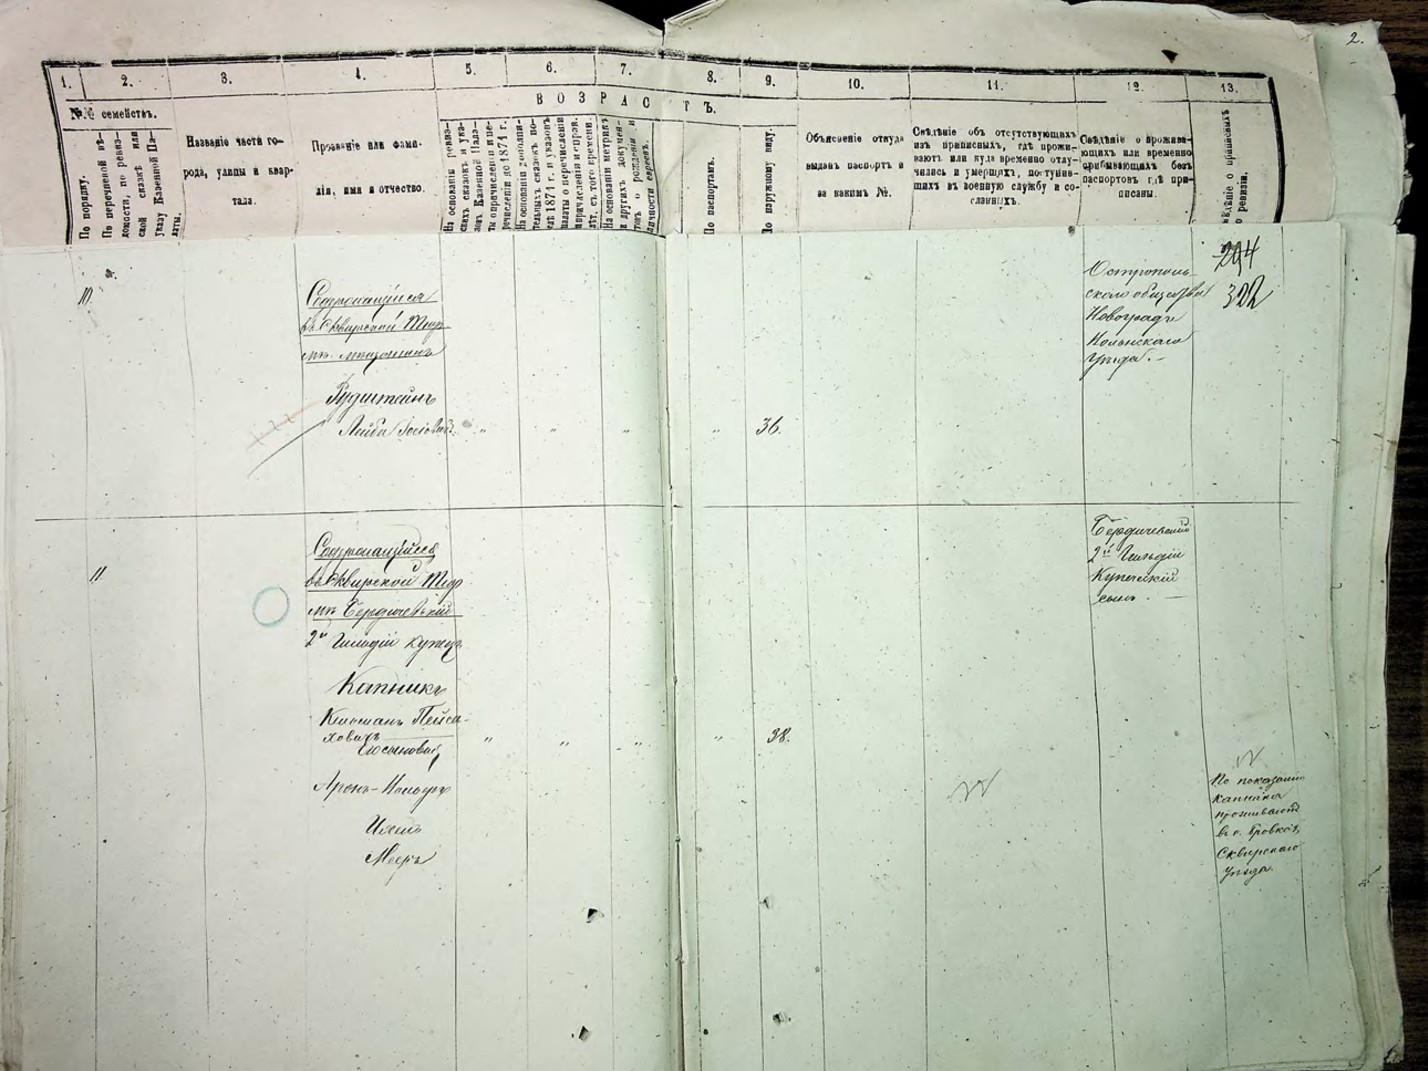 2.
1. 2. 3. 4. 5. 6. 7. 8. 9. 10. 11. 12. 13.
№№ семействъ.
По порядку.
По перечневой вѣ-
домости, по ревиз-
ской сказкѣ или
указу Казенной Па-
латы.
Названіе части го-
рода, улицы и квар-
тала.
Прозваніе или фами-
лія, имя и отчество.
ВОЗРАСТЪ.
На основаніи ревиз-
скихъ сказокъ и ука-
зовъ Казенной Пала-
ты о причисленіи и пе-
речисленіи до 1871 г.
На основаніи дополни-
тельныхъ сказокъ по-
слѣ 1871 г. и указовъ
палаты о перечисленіи
причисленія и справ.
лѣт. съ того времени.
На основаніи метрикъ
и другихъ докумен-
товъ о рожденіи и
личности евреевъ.
По паспортамъ.
По наружному виду.
Объясненіе откуда
выданъ паспортъ и
за какимъ №.
Свѣдѣніе объ отсутствующихъ
изъ приписныхъ, гдѣ прожи-
ваютъ или куда временно отлу-
чились и умершихъ, поступив-
шихъ въ военную службу и со-
сланныхъ.
Свѣдѣніе о прожива-
ющихъ или временно
прибывающихъ безъ
паспортовъ гдѣ при-
писаны.
Свѣдѣніе о приписныхъ
по ревизіи.
10.
Содержащійся
въ Сквирской Тюр-
мѣ мѣщанинъ
Рудштейнъ
Лейба Іосіовичъ
„ „ „ „ 36.
Острополь-
скаго общества
Новоградъ
Волынскаго
Уѣзда. –
294
322
11
Содержащійся
въ Сквирской Тюр-
мѣ Бердичевскій
2й Гильдіи купецъ
Капникъ
Кельманъ Пейса-
ховичъ
„ „ „ „ 38.
Сыновья
Аронъ-
Ихель
Мееръ
Бердичевскій
2й Гильдіи
Купеческій
сынъ. –
По показанію
Капника
проживаютъ
въ с. Бровкахъ
Сквирскаго
уѣзда